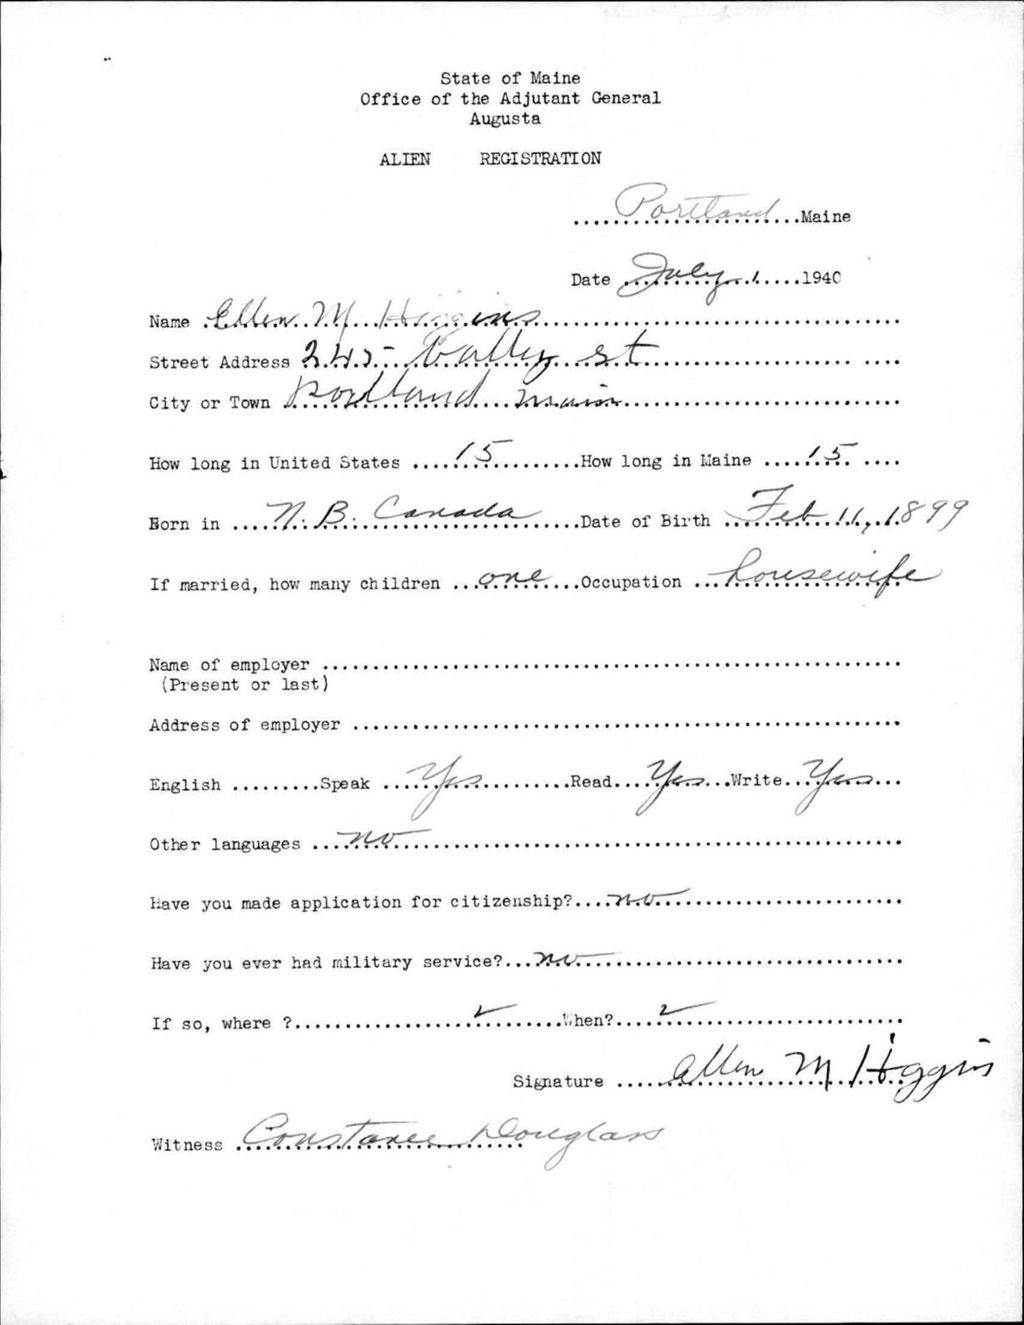 State of Maine
Office of the Adjutant General
Augusta
ALIEN REGISTRATION
Portland Maine
Date July 1 1940
Name Ellen M Higgins
Street Address 245 Valley St
City or Town Portland Main
How long in United States 15 How long in Maine 15
Born in N. B. Canada Date of Birth Feb 11, 1899
If married, how many children one Occupation housewife
Name of employer
(Present or last)
Address of employer
English Speak Yes Read Yes Write Yes
Other languages no
Have you made application for citizenship? no
Have you ever had military service? no
If so, where ? When?
Signature Ellen M Higgins
Witness Constance Douglass